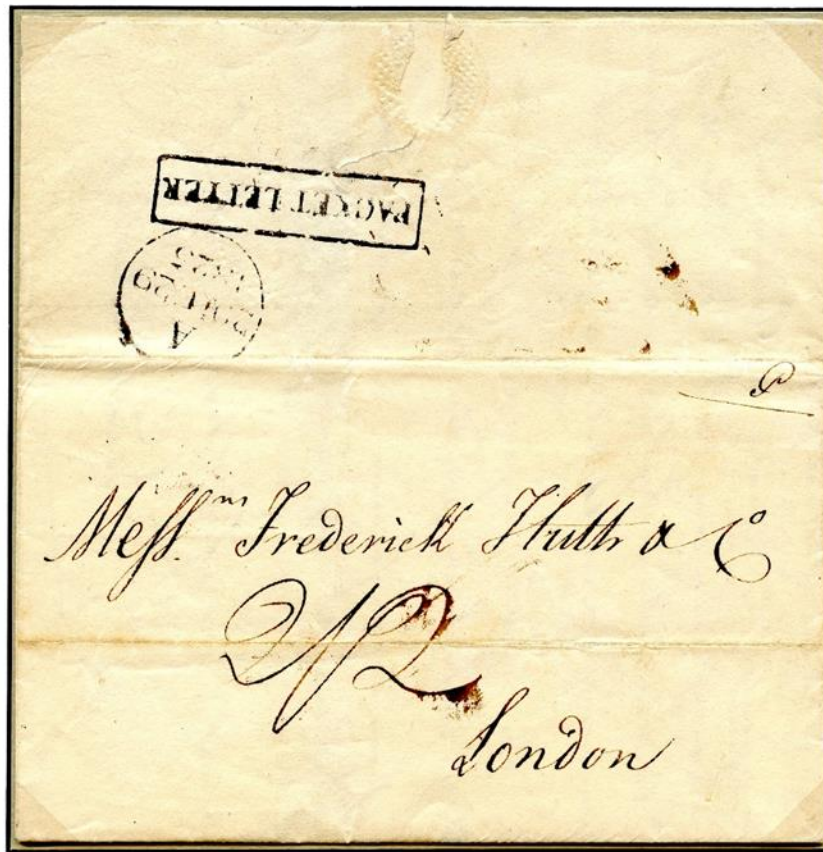 PACKET LETTER
A
29
1825
Messrs. Frederick Huth & Co
2/2
London